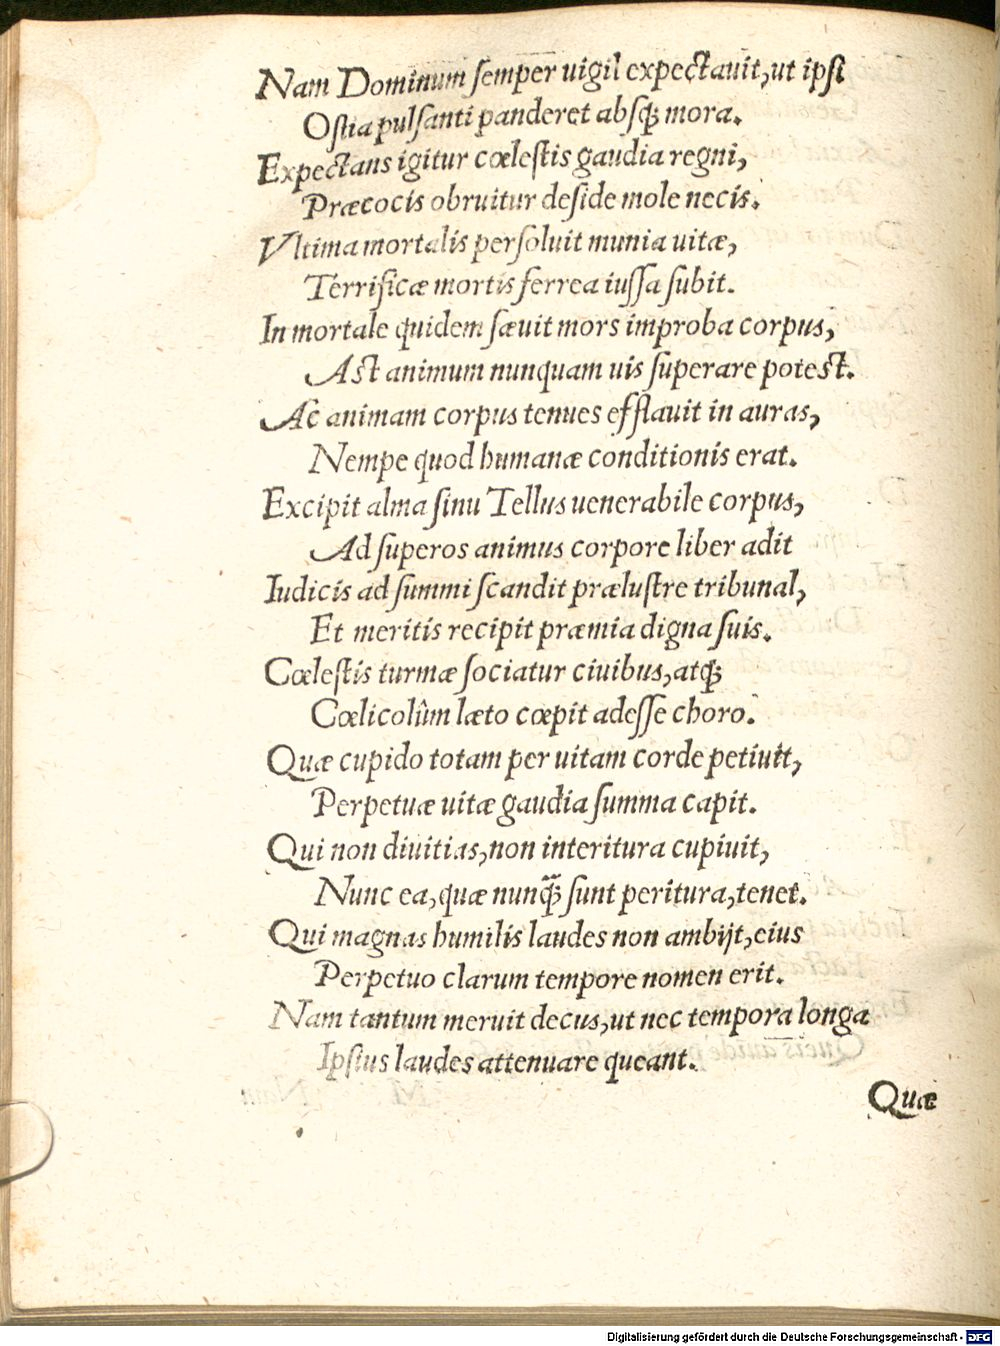 Nam Dominum ſemper uigil expectauit, ut ipſi
Oſtia pulſanti panderet abſꝗ; mora.
Expectans igitur cœleſtis gaudia regni,
Præcocis obruitur deſide mole necis.
Vltima mortalis perſoluit munia uitæ,
Terrificæ mortis ferrea iuſſa ſubit.
In mortale quidem ſæuit mors improba corpus,
Aſt animum nunquam uis ſuperare poteſt.
Ac animam corpus tenues efflauit in auras,
Nempe quod humanæ conditionis erat.
Excipit alma ſinu Tellus uenerabile corpus,
Ad ſuperos animus corpore liber adit
Iudicis ad ſummi ſcandit præluſtre tribunal,
Et meritis recipit præmia digna ſuis.
Cœleſtis turmæ ſociatur ciuibus, atꝗ;
Cœlicolûm læto cœpit adeſſe choro.
Quæ cupido totam per uitam corde petiuit,
Perpetuæ uitæ gaudia ſumma capit.
Qui non diuitias, non interitura cupiuit,
Nunc ea, quæ nunꝗ̃ ſunt peritura, tenet.
Qui magnas humilis laudes non ambijt, eius
Perpetuo clarum tempore nomen erit.
Nam tantum meruit decus, ut nec tempora longa
Ipſius laudes attenuare queant.
Quæ
Digitalisierung gefördert durch die Deutsche Forschungsgemeinschaft - DFG